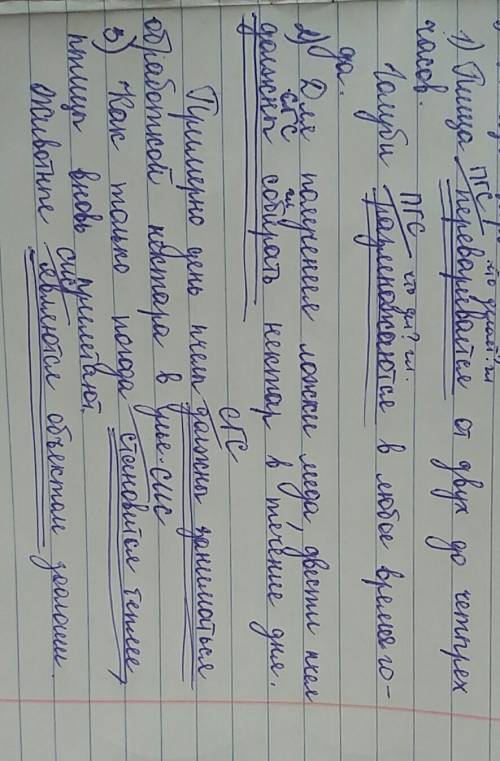 ПГС что делает? гл
1) Пища переваривается от двух до четырех
часов.
ПГС что дел? гл.
Голуби размножаются в любое время го-
да.
2) Для получения ложки меда, двести пчел
СГС гл
должны собирать нектар в течение дня.
СГС
Примерно день пчелы должны заниматься
обработкой нектара в улье. СИС
3) Как только погода становится теплее,
птицы вновь прилетают.
СИС
Животные являются объектам зоологии.